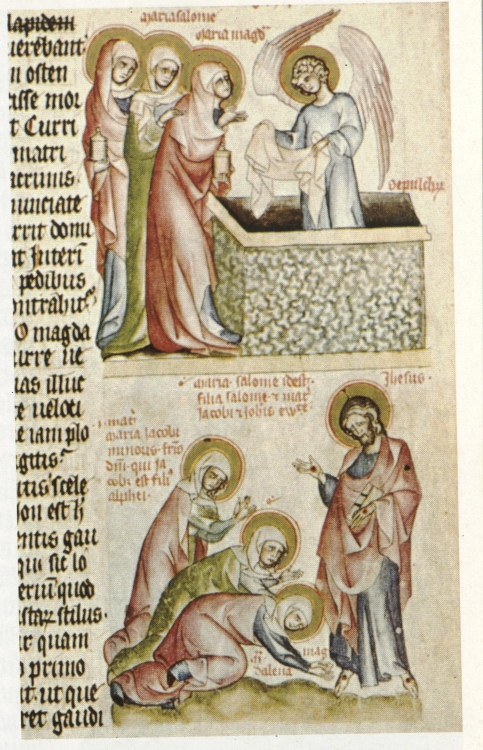 lapidem
uerebant
n osten
asse mor
t Curri
matri
acrimis
nunciate
rrit domu
at Interi
pedibus
ontrahit
O magda
urre ue
ias illuc
e ueloci
e iam plo
agitis
itis scele
on est h
entis gau
qui sic lo
eriu quod
istaz stilus
ir quam
o primo
nt ut que
ret gaudi
maria salome
maria magd
sepulchr
maria salome idest
filia salome
iacobi
Ihesus
mar
maria iacobi
minoris
dm qui ia
cobi est fili
alphei
mag
dalena